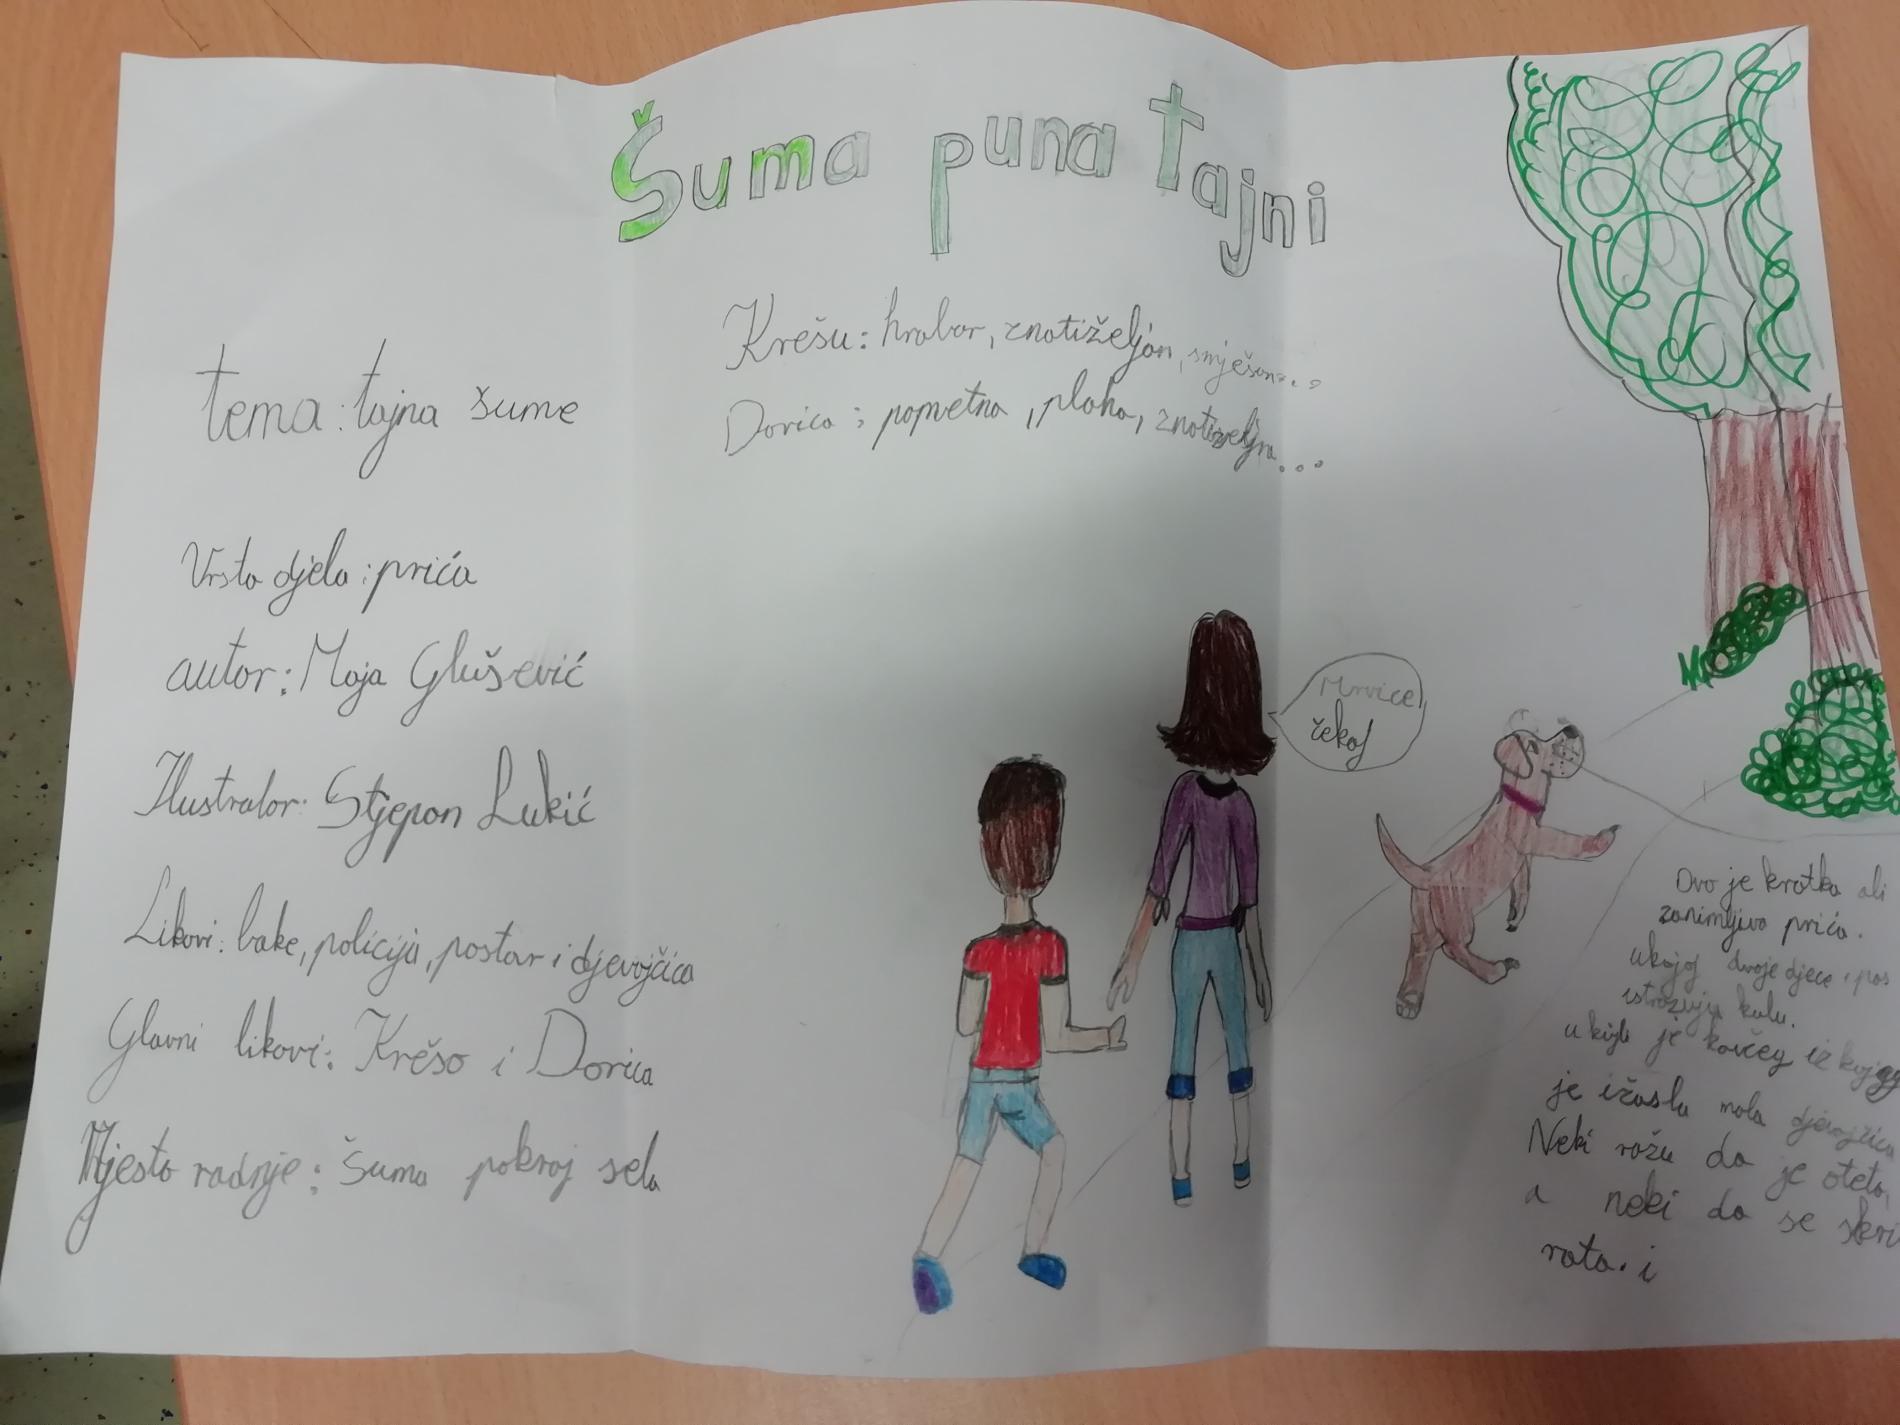 Šuma puna tajni
tema: tajna šume
Vrsta djela: priča
autor: Maja Glušević
Ilustrator: Stjepan Lukić
Likovi: bake, policija, postar i djevojčica
Glavni likovi: Krešo i Dorica
Mjesto radnje: Šuma pokraj sela
Krešu: hrabar, znatiželjan, smješan...
Dorica: pametna, plaha, znatiželjna...
Mrvice
čekaj
Ovo je kratka ali
zanimljiva priča.
ukojoj dvoje djece i pas
istražuju kulu.
u kojoj je kovčeg iz kojeg
je ižasla mala djevojčica
Neki kažu da je oteta,
a neki da se skri
rata. i